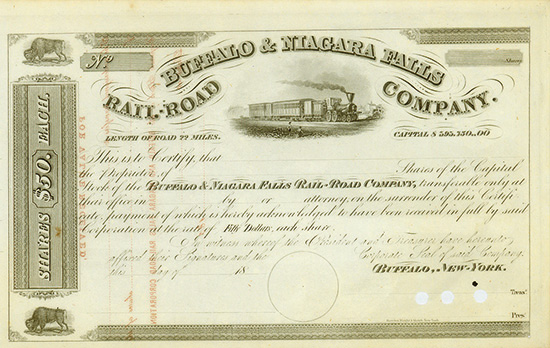 Nº
BUFFALO & NIAGARA FALLS
Shares
RAIL-ROAD
COMPANY.
LENGTH OF ROAD 22 MILES.
CAPITAL $
SHARES $50. EACH.
This is to Certify, that
the Proprietor of
Shares of the Capital
Stock of the BUFFALO & NIAGARA FALLS RAIL-ROAD COMPANY, transferable only at
their office in by or attorney, on the surrender of this Certifi-
cate, payment of which is hereby acknowledged to have been received in full by said
Corporation at the rate of Fifty Dollars, each share.
In witness whereof the President and Treasurer have hereunto
affixed their Signatures and the Corporate Seal of said Company.
this day of 18
BUFFALO, NEW-YORK.
Treasr.
Prest.